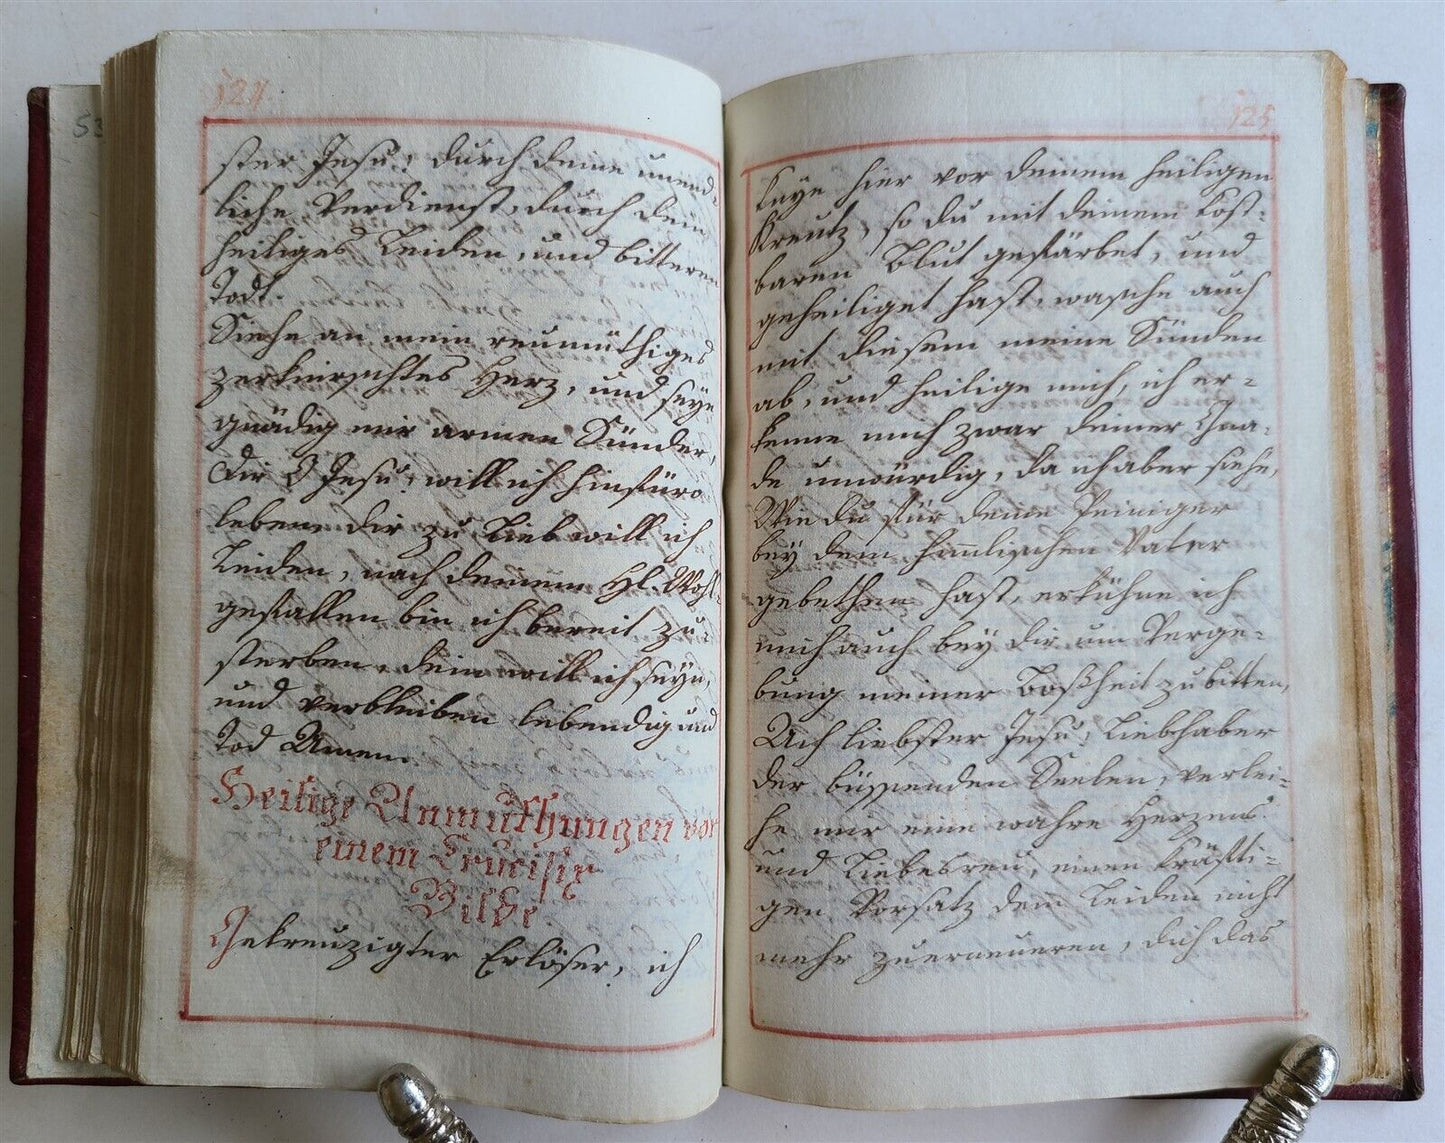 124
ster Jesu! durch deine unend-
liche Verdienst, durch dein
heiliges Leiden, und bitteren
Todt.
Siehe an mein reumüthiges
zerknirschtes Herz, und seye
gnädig mir armen Sünder,
Dir O Jesu, will ich hinfüro
leben, dir zu Lieb will ich
Leiden, nach deinem Hl. Wohl-
gefallen bin ich bereit zu-
sterben, dein will ich seyn,
und verbleiben lebendig und
tod Amen.
Heilige Anmuthungen vor
einem Crucifix
Bilde
Gekreuzigter Erlöser, ich
125
knye hier vor deinem heiligen
Kreutz, so du mit deinem kost-
baren Blut gefärbet, und
geheiliget hast, wasche auch
mit diesem meine Sünden
ab, und heilige mich, ich er-
kenne mich zwar deiner Gna-
de unwürdig, da ich aber siehe,
Wie du für deine Peiniger
bey dem himlischen Vater
gebethen hast, erkühne ich
mich auch bey dir um Verge-
bung meiner Boßheit zu bitten,
Ach liebster Jesu! Liebhaber
der büssenden Seelen, verlei-
he mir eine wahre Herzens-
und Liebesreu, einen kräfti-
gen Vorsatz dein Leiden nicht
mehr zu erneueren, dich das